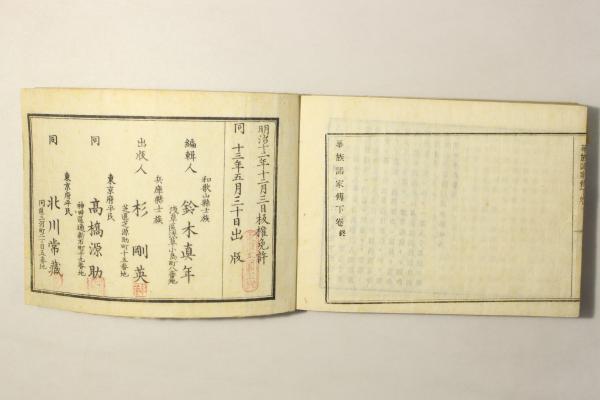 華族諸家傳下卷終
明治十二年十二月三日板權免許
同 十三年五月三十日出版
和歌山縣士族
編輯人 鈴木真年
浅草區浅草小島町八番地
兵庫縣士族
出版人 杉剛英
芝區芝源助町十五番地
東京府平民
同 高橋源助
神田區通新石町十七番地
東京府平民
同 北川常蔵